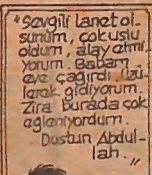 "Sevgili lanet ol-
sunum, çok uslu
oldum, alay etmi-
yorum. Babam
eve çağırdı. Üzü-
lerek gidiyorum.
Zira burada çok
eğleniyordum.
Dustun Abdul-
lah."